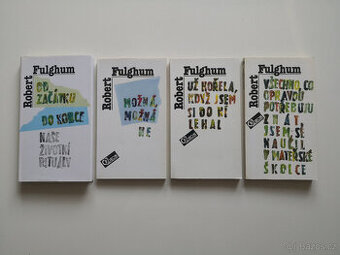 Robert
Fulghum
OD
ZAČÁTKU
DO KONCE
NAŠE
ŽIVOTNÍ
RITUÁLY
Robert
Fulghum
MOŽNÁ,
MOŽNÁ
NE
Robert
Fulghum
UŽ HOŘELA,
KDYŽ JSEM
SI DO NÍ
LEHAL
Robert
Fulghum
VŠECHNO, CO
OPRAVDU
POTŘEBUJU
ZNÁT,
JSEM SE
NAUČIL
V MATEŘSKÉ
ŠKOLCE